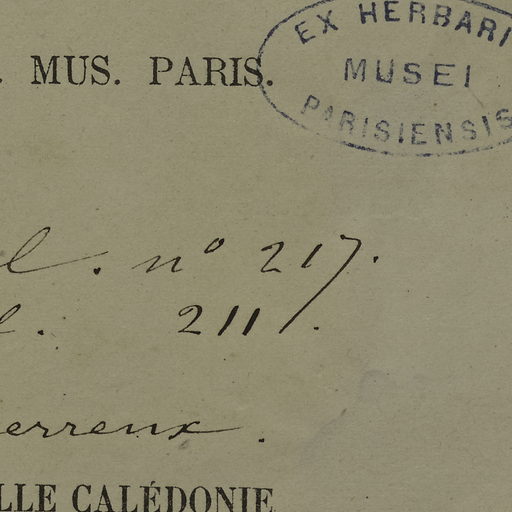 . MUS. PARIS.
EX HERBARI
MUSEI
PARISIENSIS
l. nº 217.
l. 211.
erreux.
LLE CALÉDONIE